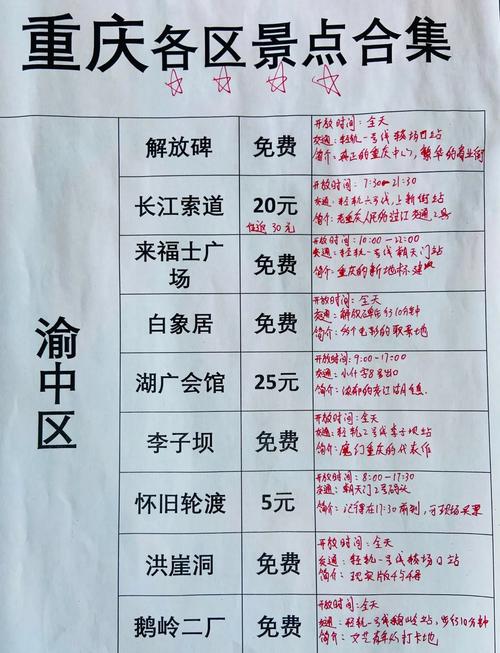 重庆各区景点合集
渝中区
解放碑
免费
开放时间:全天
交通:轻轨一号线较场口站
简介:真正的重庆中心,繁华的商业街
长江索道
20元
往返30元
开放时间:7:30-21:30
交通:轻轨六号线,上新街站
简介:老重庆人民的过江交通工具
来福士广
场
免费
开放时间:10:00-22:00
交通:轻轨一号线朝天门站
简介:重庆的新地标建
白象居
免费
开放时间:全天
交通:解放碑步行10分钟
简介:电影的取景地
湖广会馆
25元
开放时间:9:00-17:00
交通:小什字8号出口
简介:浓郁的老江湖
李子坝
免费
开放时间:全天
交通:轻轨2号线李子坝站
简介:魔幻重庆的代表作
怀旧轮渡
5元
开放时间:8:00-17:30
交通:朝天门2号码头
简介:记得在17:30前到,可现场买票
洪崖洞
免费
开放时间:全天
交通:轻轨一号线较场口站
简介:现实版千与千寻
鹅岭二厂
免费
开放时间:全天
交通:轻轨一号线鹅岭站,步行10分钟
简介:文艺青年的打卡地